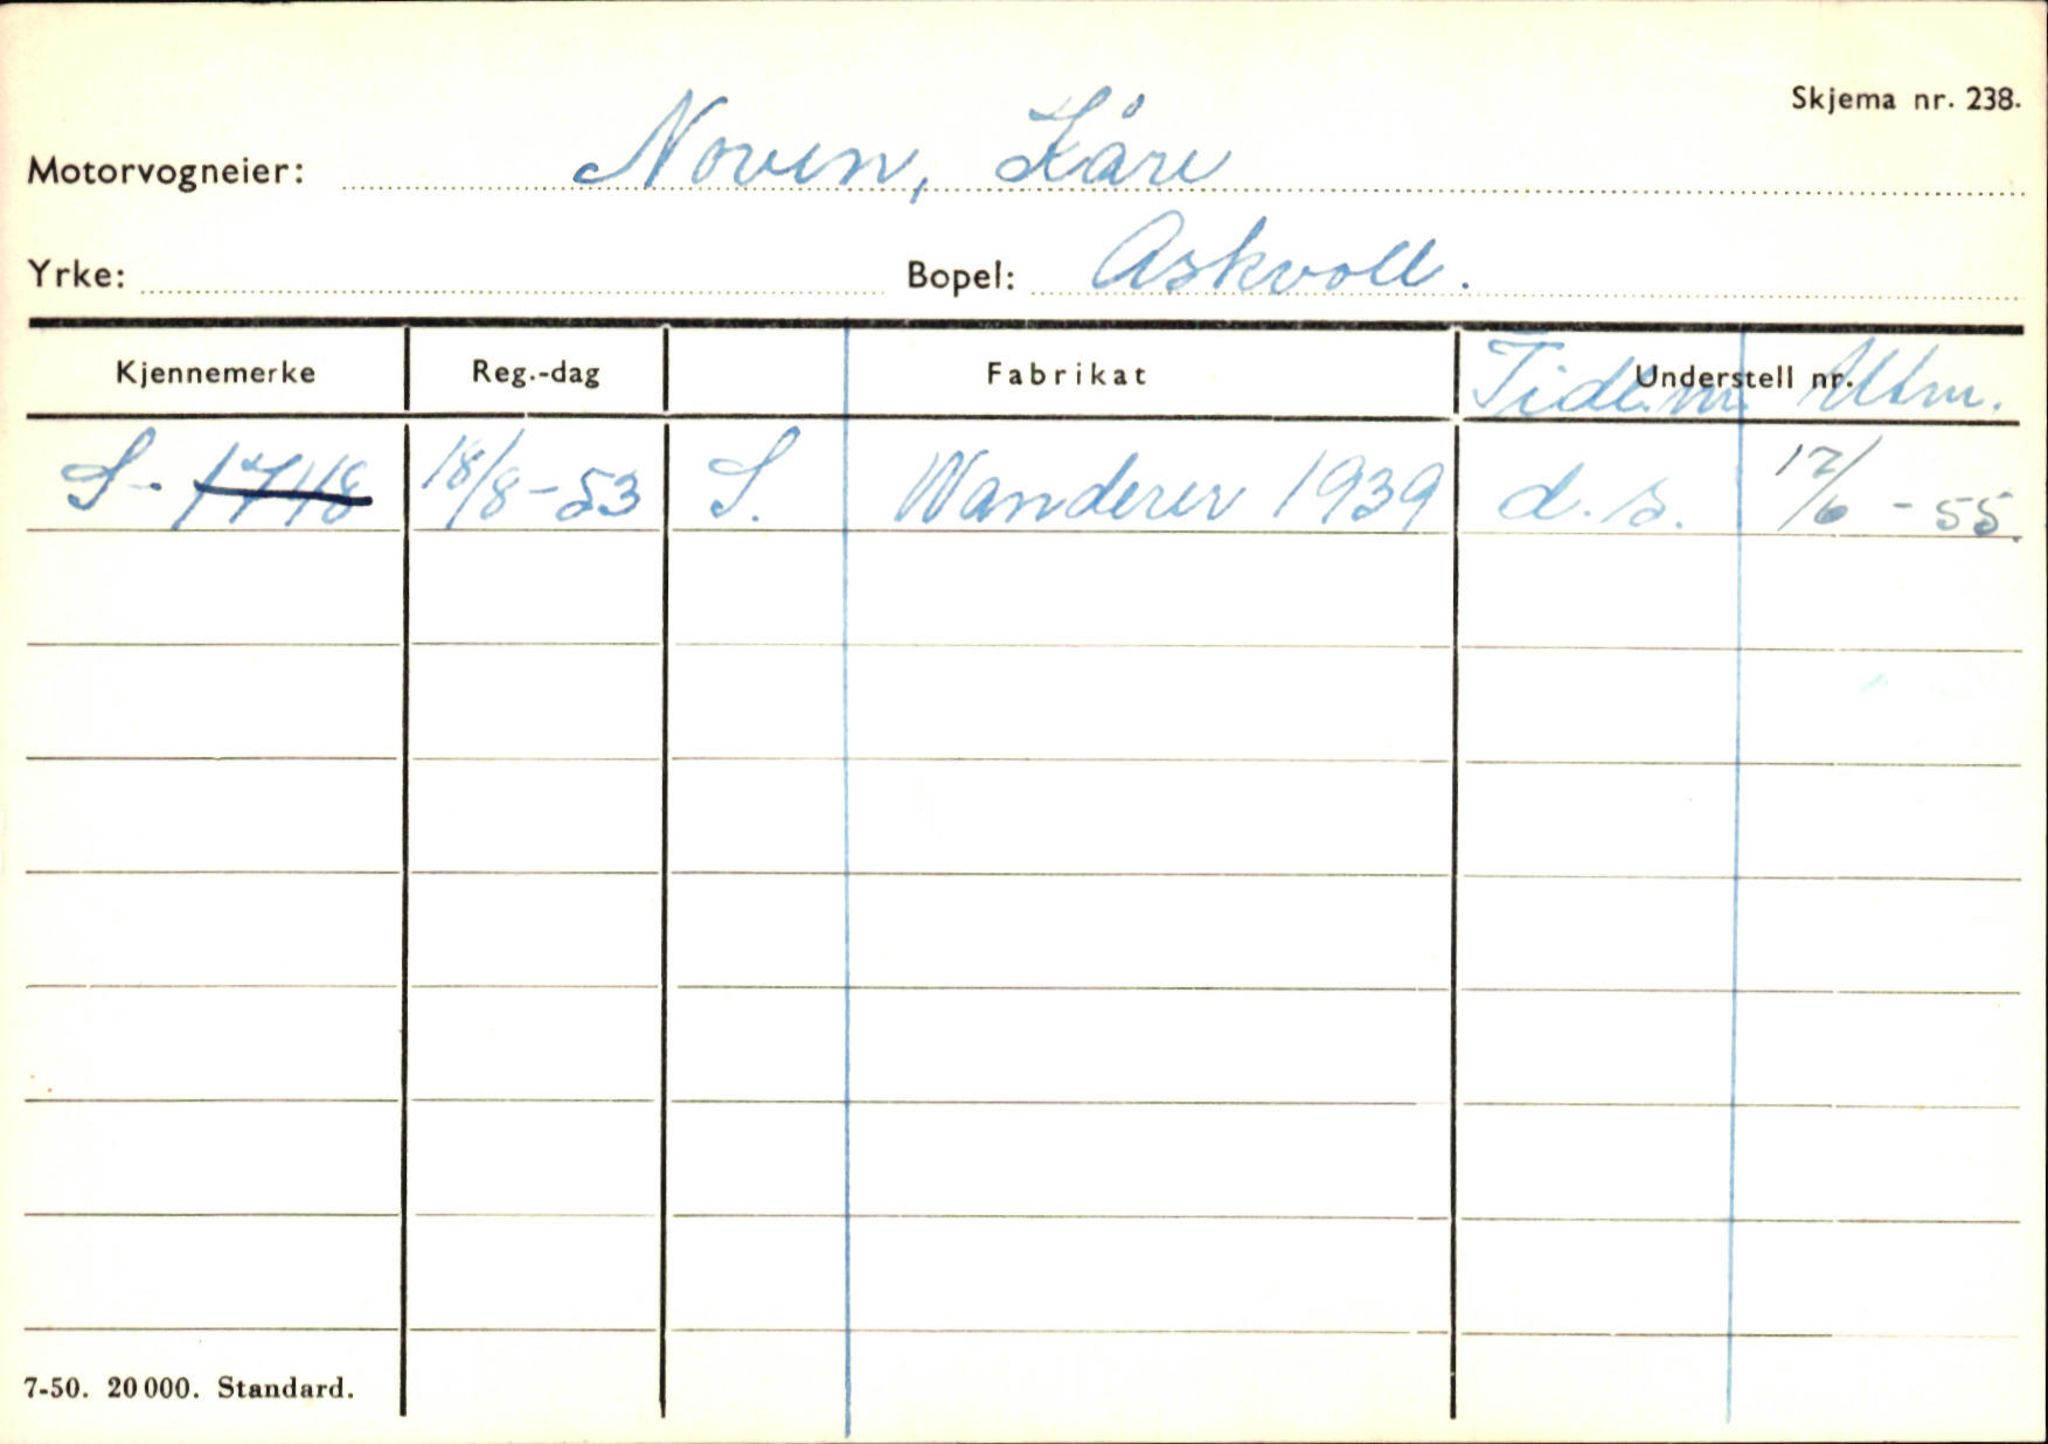 Skjema nr. 238.
Motorvogneier: Noven, Kåre
Yrke: Bopel: Askvoll.
Kjennemerke Reg.-dag Fabrikat Understell nr. Tidl. nr. Utm.
S- 1718 18/8-53 S. Wanderer 1939 d.s. 17/6-55.
7-50. 20 000. Standard.